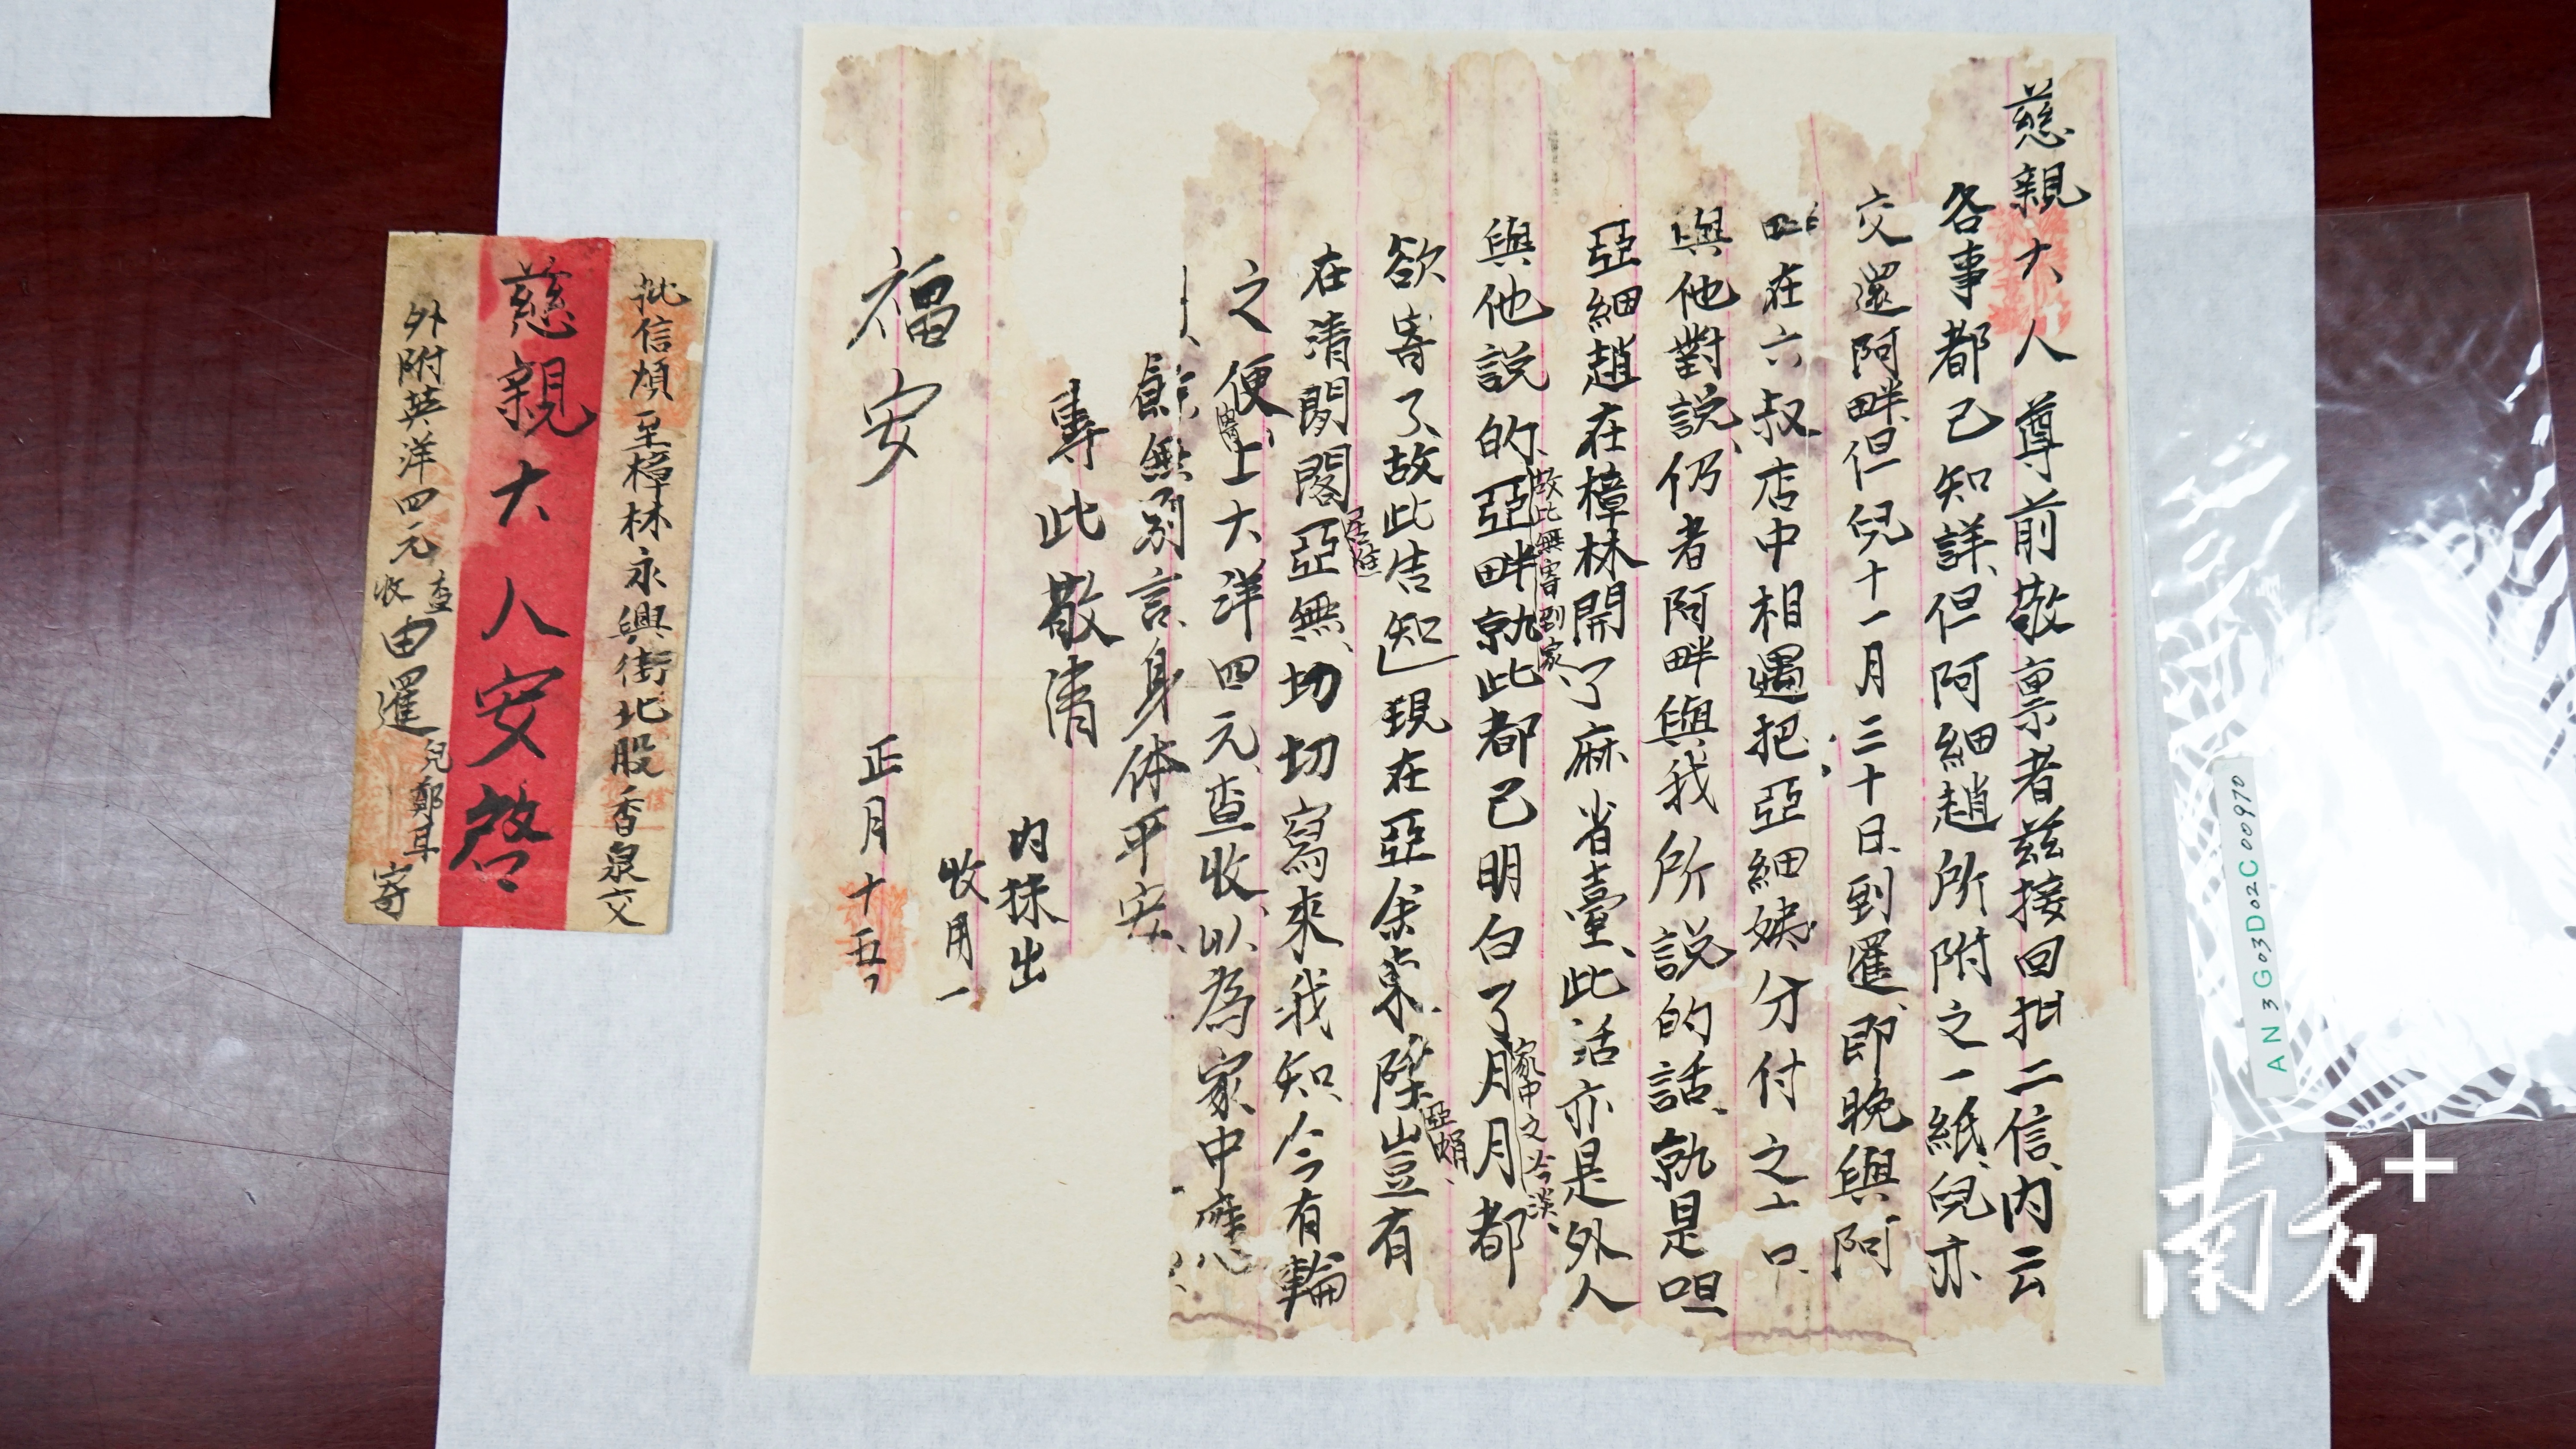 慈親大人尊前敬稟者茲接回批二信、內云
各事都己知詳、但阿細趙所附之一紙、兒亦
交還阿畔、但兒十一月三十日、到暹、即晚與阿
在六叔店中相遇把亞細姨分付之口
與他對説、仍者阿畔與我所説的話、就是呾
亞細趙在樟林開了麻雀臺、此活亦是外人
與他説的、亞畔就此都己明白了月月都
故此無寄到家、
家中之冷淡、
欲寄了、故此告知現在亞余東、隆豈有
亞娟、
在清閑閣亞無、切切寫來我知、今有輪
之便、上大洋四元、查收、以為家中應
餘無別言、身体平安、
專此敬清
福安
內抹出
收用一
正月十五
批信煩至樟林永興街北股香泉交
慈親大人安啓
外附英洋四元查收由暹兒鄭耳寄
南方+
AN3G03D02C00970